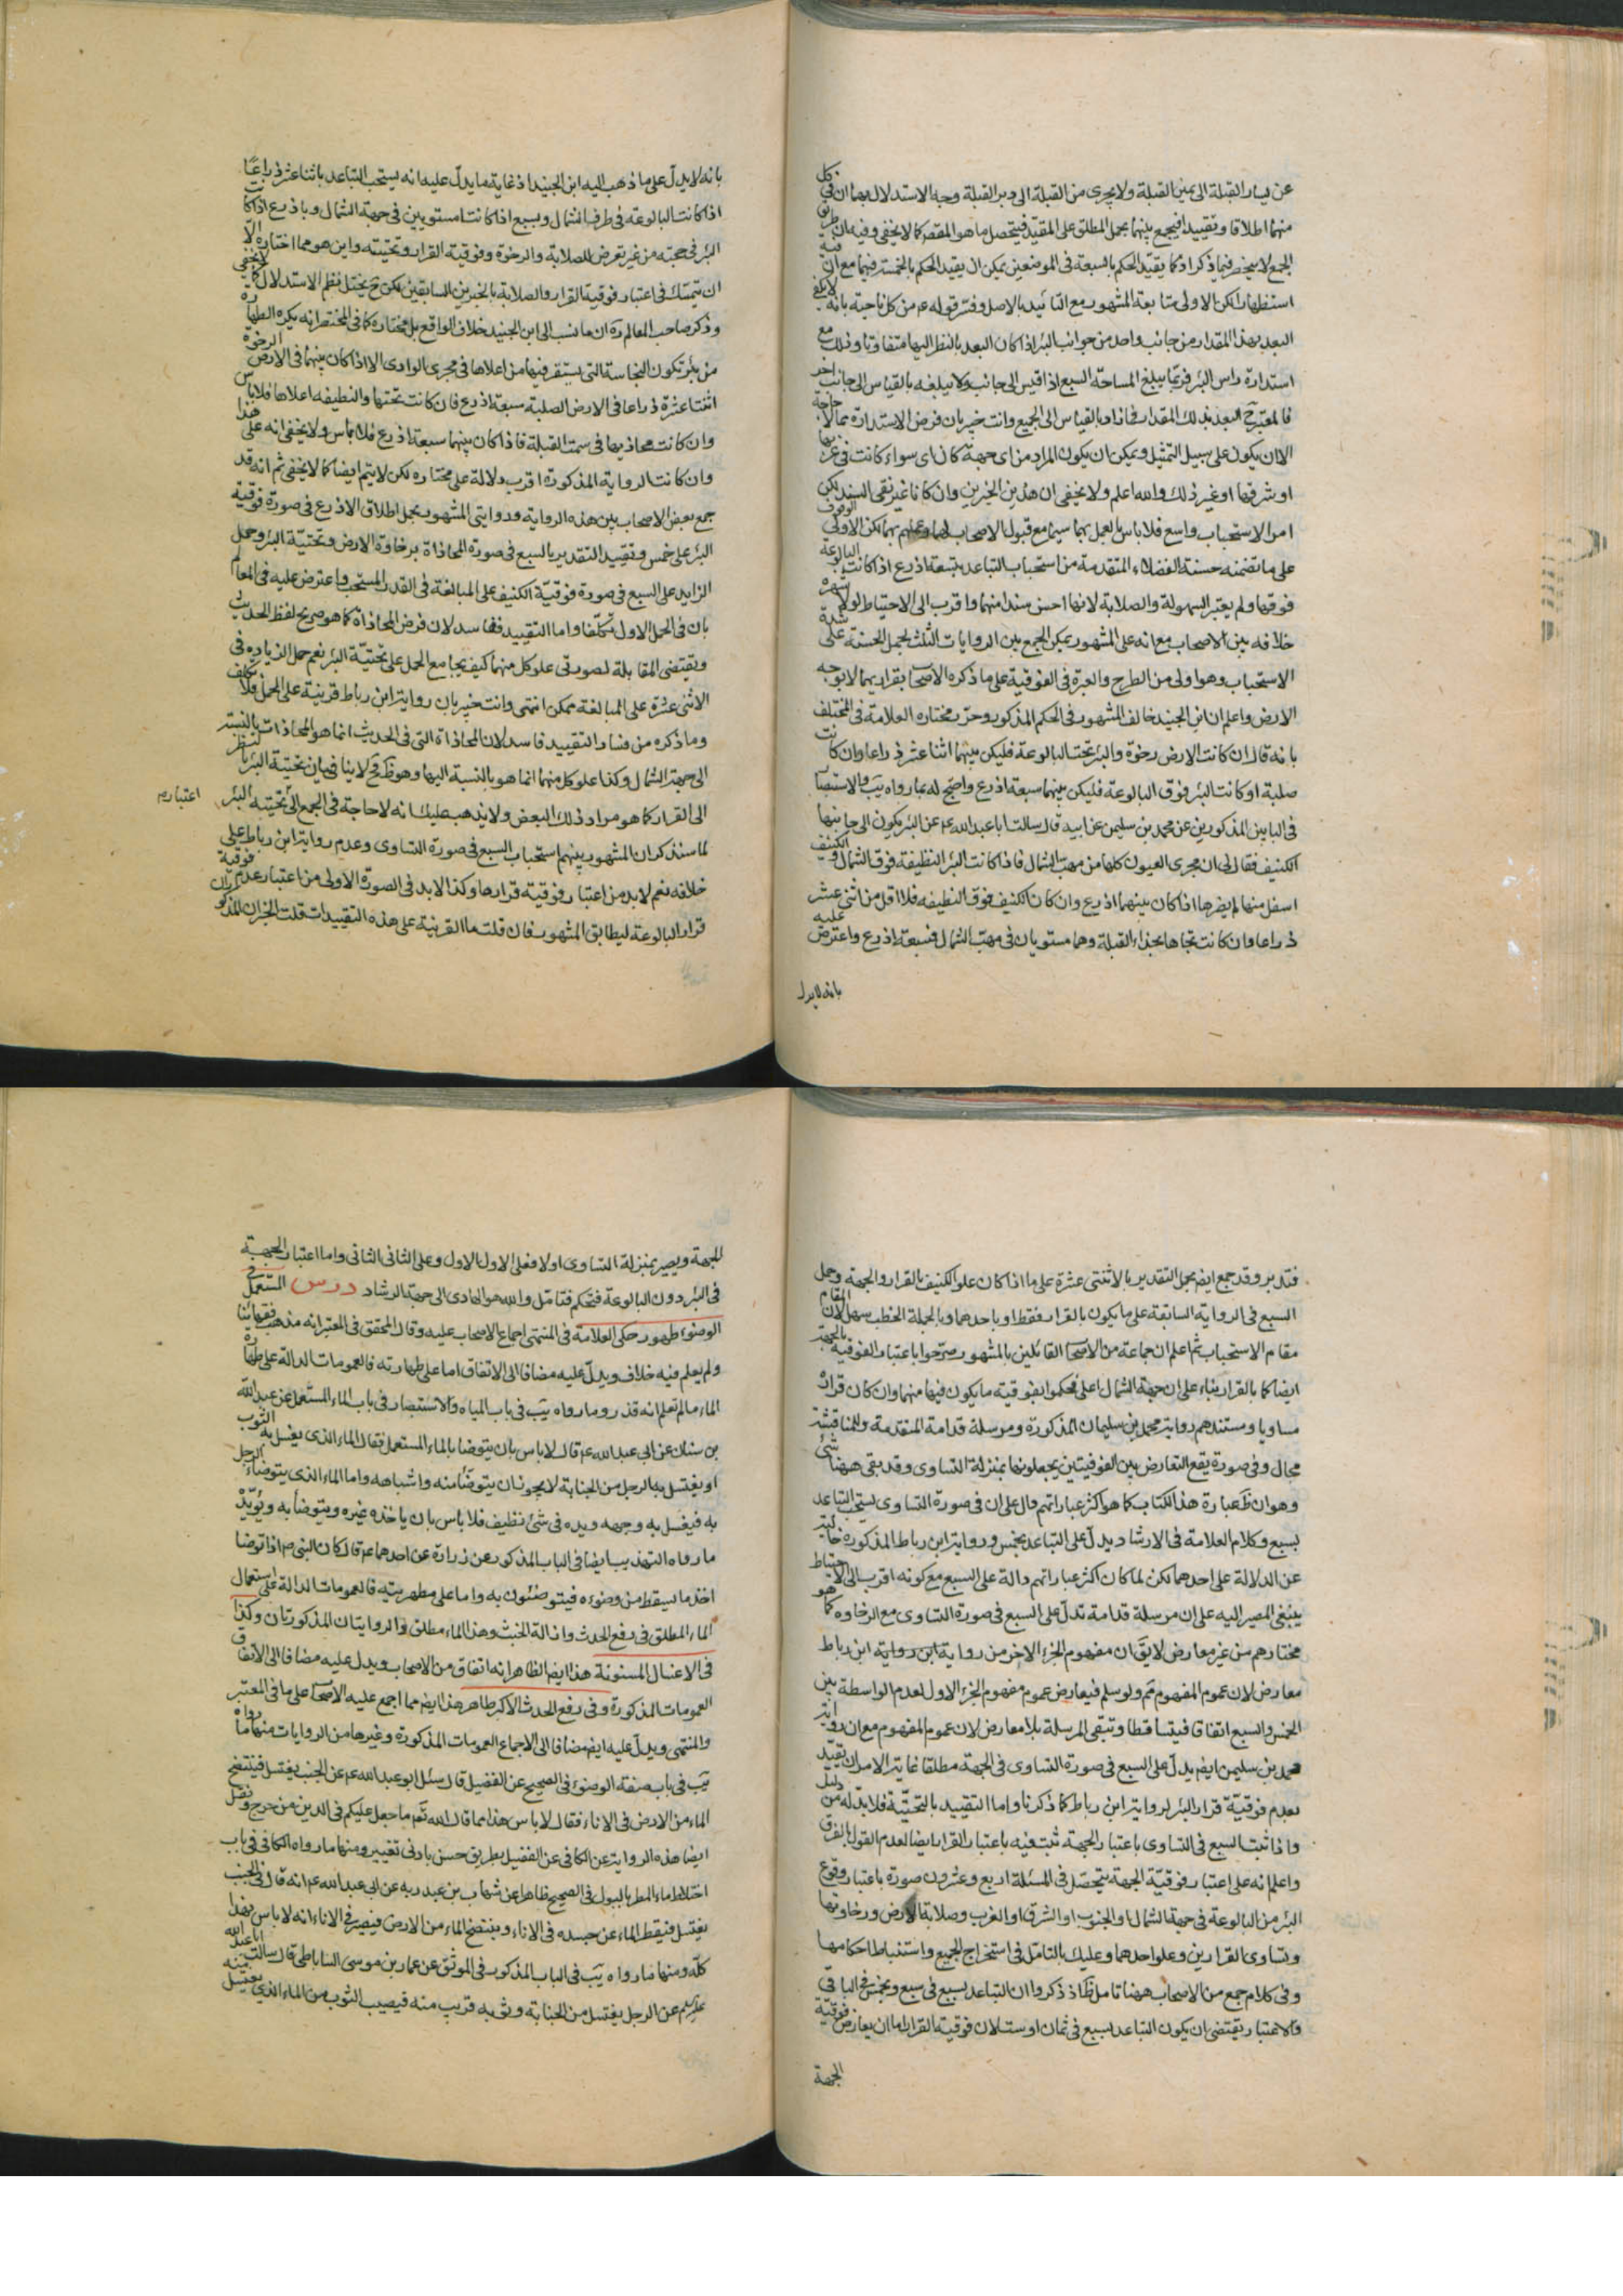 عن يسار القبلة الى يمين القبلة ولا يجرى من القبلة الى دبر القبلة وجه الاستدلال بهما ان فى كل
منهما اطلاقا وتقييدا فيجمع بينهما بحمل المطلق على المقيد فيتحصل ما هو المقصد كما لا يخفى وفيه ان طريق
الجمع لا ينحصر فيما ذكر اذ كما يقيد الحكم بالسبعة فى الموضعين يمكن ان يقيد الحكم بالخمسة فيهما مع ان فيه
استظهارا لكن الاولى متابعة المشهور مع التائيد بالاصل وفسّر قوله ع من كل ناحية بانه لا يكفى
البعد بهذا المقدار من جانب واحد من جوانب البئر اذا كان البعد بالنظر اليها متفاوتا وذلك مع
استدارة راس البئر فربما يبلغ المساحة السبع اذا قيس الى جانب ولا يبلغه بالقياس الى جانب اخر
فالمعتبر ح البعد بذلك المقدار فما زاد بالقياس الى الجميع وانت خبير بان فرض الاستدارة مما لا حاجة
الا ان يكون على سبيل التمثيل ويمكن ان يكون المراد من اى جهة كان اى سواء كانت فى غربها
او شرقها او غير ذلك والله اعلم ولا يخفى ان هذين الخبرين وان كانا غير نقى السند لكن
امر الاستحباب واسع فلا باس بالعمل بهما سيما مع قبول الاصحاب لهما وعملهم بهما لكن الاولى الوقوف
على ما تضمنه حسنة الفضلاء المتقدمة من استحباب التباعد بتسعة اذرع اذا كانت البالوعة
فوقها ولم يعتبر السهولة والصلابة لانها احسن سندا منهما واقرب الى الاحتياط لولا شهرة
خلافه بين الاصحاب مع انه على المشهور يمكن الجمع بين الروايات الثلث بحمل الحسنة على شدة
الاستحباب وهو اولى من الطرح والعبرة فى الفوقية على ما ذكره الاصحاب بقراريهما لا بوجه
الارض واعلم ان ابن الجنيد خالف المشهور فى الحكم المذكور وحرّر مختاره العلامة فى المختلف
بانه قال ان كانت الارض رخوة والبئر تحت البالوعة فليكن بينهما اثنا عشر ذراعا وان كانت
صلبة او كانت البئر فوق البالوعة فليكن بينهما سبعة اذرع واحتج له بما رواه يب والاستبصار
فى البابين المذكورين عن محمد بن سليمن عن ابيه قال سالت ابا عبد الله ع عن البئر يكون الى جانبها
الكنيف فقال لى ان مجرى العيون كلها من مهب الشمال فاذا كانت البئر النظيفة فوق الشمال والكنيف
اسفل منها لم يضرها اذا كان بينهما اذرع وان كان الكنيف فوق النظيفه فلا اقل من اثنى عشر
ذراعا وان كانت تجاها بحذاء القبلة وهما مستويان فى مهب الشمال فسبعة اذرع واعترض عليه
بانه لا يدل
بانه لا يدلّ على ما ذهب اليه ابن الجنيد اذ غاية ما يدلّ عليه انه يستحب التباعد باثنا عشر ذراعًا
اذا كانت البالوعة فى طرف الشمال وبسبع اذا كانتا مستويين فى جهة الشمال وباذرع اذا كانت
البئر فى جهته من غير تعرض للصلابة والرخوة وفوقية القرار وتحتيته واين هو مما اختاره الا
ان يتمسك فى اعتبار فوقية القرار والصلابة بالخبرين السابقين لكن ح يختل نظم الاستدلال كما لا يخفى
وذكر صاحب المعالم ره ان ما نسب الى ابن الجنيد خلاف الواقع بل مختاره كما فى المختصر انه يكره الطهارة
من بئر تكون النجاسة التى يستقر فيها من اعلاها فى مجرى الوادى الا اذا كان بينهما فى الارض الرخوة
اثنتا عشرة ذراعا فى الارض الصلبة سبعة اذرع فان كانت تحتها والنظيفه اعلاها فلا باس
وان كانت محاذيها فى سمت القبلة فاذا كان بينهما سبعة اذرع فلا باس ولا يخفى انه على هذا
وان كانت الرواية المذكورة اقرب دلالة على مختاره لكن لا يتم ايضا كما لا يخفى ثم انه قد
جمع بعض الاصحاب بين هذه الرواية وروايتى المشهور بحمل اطلاق الاذرع فى صورة فوقية
البئر على خمس وتقييد التقدير بالسبع فى صورة المحاذاة برخاوة الارض وتحتيّة البئر وحمل
الزايد على السبع فى صورة فوقيّة الكنيف على المبالغة فى القدر المستحب واعترض عليه فى المعالم
بان فى الحمل الاول تكلّفا واما التقييد ففاسد لان فرض المحاذاة كما هو صريح لفظ الحديث
ويقتضى المقابلة لصورتى علو كل منهما كيف يجامع الحمل على تحتيّة البئر نعم حمل الزياده فى
الاثنى عشرة على المبالغة ممكن انتهى وانت خبير بان رواية ابن رباط قرينة على الحمل فلا تكلف
وما ذكره من فساد التقييد فاسد لان المحاذاة التى فى الحديث انما هو المحاذات بالنسبة
الى جهة الشمال وكذا علو كل منهما انما هو بالنسبة اليها وهو ظ ح ولا ينافى بيان تحتية البئر بالنظر
الى القرار كما هو مراد ذلك البعض ولا يذهب عليك انه لا حاجة فى الجمع الى تحتيته البئر
اعتباره
لما سنذكر ان المشهور بينهم استحباب السبع فى صورة التساوى وعدم رواية ابن رباط على
خلافه نعم لا بد من اعتبار فوقية قرارها وكذا لا بد فى الصورة الاولى من اعتبار عدم فوقية
قرار البالوعة ليطابق المشهور فان قلت ما القرينة على هذه التقييدات قلت الخبران المذكوران
فتدبر وقد جمع ايض بحمل التقدير بالاثنتى عشرة على ما اذا كان علو الكنيف بالقرار والجهة وحمل
السبع فى الرواية السابقة على ما يكون بالقرار فقط او باحدهما وبالجملة الخطب سهل لان المقام
مقام الاستحباب ثم اعلم ان جماعة من الاصحاب القائلين بالمشهور صرّحوا باعتبار الفوقية بالجهة
ايضا كما بالقرار بناء على ان جهة الشمال اعلى فحكموا بفوقيته ما يكون فيها منهما وان كان قراره
مساويا ومستندهم رواية محمد بن سليمان المذكورة ومرسلة قدامة المتقدمة وللمناقشة
مجال وفى صورة يقع التعارض بين الفوقيتين يجعلونها بمنزلة التساوى وقد بقى ههنا شئ
وهو ان ظ عبارة هذا الكتاب كما هو اكثر عباراتهم دال على ان فى صورة التساوى يستحب التباعد
بسبع وكلام العلامة فى الارشاد يدلّ على التباعد بخمس ورواية ابن رباط المذكورة خالية
عن الدلالة على احدهما لكن لما كان اكثر عباراتهم دالة على السبع مع كونه اقرب الى الاحتياط
ينبغى المصير اليه على ان مرسلة قدامة تدلّ على السبع فى صورة التساوى مع الرخاوه كما هو
مختارهم من غير معارض لا يق ان مفهوم الجزء الاخر من رواية ابن رواية ابن رباط
معارض لان عموم المفهوم مم ولو سلم فيعارض عموم مفهوم الجزء الاول لعدم الواسطة بين
الخمس والسبع اتفاقا فيتساقطا وتبقى المرسلة بلا معارض لان عموم المفهوم مع ان رواية
محمد بن سليمن ايض يدلّ على السبع فى صورة التساوى فى الجهة مطلقا غاية الامر ان تقيّد
بعدم فوقيّة قرار البئر لرواية ابن رباط كما ذكرنا واما التقييد بالتحتيّة فلا بدّ له من دليل
واذا ثبت السبع فى التساوى باعتبار الجهة ثبت فيه باعتبار القرار ايضا لعدم القول بالفرق
واعلم انه على اعتبار فوقيّة الجهة يتحصّل فى المسئلة اربع وعشرون صورة باعتبار وقوع
البئر من البالوعة فى جهة الشمال او الجنوب او الشرق او الغرب وصلابة الارض ورخاوتها
وتساوى القرارين وعلو احدهما وعليك بالتامّل فى استخراج الجميع واستنباط احكامها
وفى كلام جمع من الاصحاب ههنا تامل ظ اذ ذكروا ان التباعد بسبع فى سبع وبخمس فى الباقى
والاعتبار يقتضى ان يكون التباعد بسبع فى ثمان او ست لان فوقية القرار اما ان يعارض فوقيّة
الجهة
الجهة ويصير بمنزلة التساوى اولا فعلى الاول الاول وعلى الثانى الثانى واما اعتبار الجهة
فى البئر دون البالوعة فتحكم فتامّل والله هو الهادى الى جهة الرشاد درس المستعمل فى
الوضوء طهور حكى العلامة فى المنتهى اجماع الاصحاب عليه وقال المحقق فى المعتبر انه مذهب فقهائنا
ولم يعلم فيه خلاف ويدلّ عليه مضافا الى الاتفاق اما على طهارته فالعمومات الدالة على طهارة
الماء ما لم تعلم انه قذر وما رواه يب فى باب المياه والاستبصار فى باب الماء المستعمل عن عبد الله
بن سنان عن ابى عبد الله ع قال لا باس بان يتوضا بالماء المستعمل فقال الماء الذى يغسل به الثوب
او يغتسل به الرجل من الجنابة لا يجوز ان يتوضّأ منه واشباهه واما الماء الذى يتوضاء الرجل
به فيغسل به وجهه ويده فى شئ نظيف فلا باس بان ياخذه غيره ويتوضأ به ويؤيّده
ما رواه التهذيب ايضا فى الباب المذكور عن زرارة عن احدهما ع قال كان النبى ص اذا توضا
اخذ ما يسقط من وضوءه فيتوضئون به واما على مطهريته فالعمومات الدالة على استعمال
الماء المطلق فى رفع الحدث وازالة الخبث وهذا الماء مطلق والروايتان المذكورتان وكذا
فى الاغسال المسنونة هذا ايض الظاهر انه اتفاق من الاصحاب ويدل عليه مضافا الى الاتفاق
العمومات المذكورة وفى رفع الحدث الاكبر طاهر هذا ايض مما اجمع عليه الاصحاب على ما فى المعتبر
والمنتهى ويدلّ عليه ايض مضافا الى الاجماع العمومات المذكورة وغيرها من الروايات منها ما رواه
يب فى باب صفة الوضوء فى الصحيح عن الفضيل قال سئل ابو عبد الله ع عن الجنب يغتسل فينتضح
الماء من الارض فى الاناء فقال لا باس هذا مما قال الله تع ما جعل عليكم فى الدين من حرج ونقل
ايضا هذه الرواية عن الكافى عن الفضيل بطريق حسن بادنى تغيير ومنها ما رواه الكافى فى باب
اختلاط ماء المطر بالبول فى الصحيح ظاهرا عن شهاب بن عبد ربه عن ابى عبد الله ع انه قال فى الجنب
يغتسل فيقطر الماء عن جسده فى الاناء وينتضح الماء من الارض فيصير فى الاناء انه لا باس بهذا
كلّه ومنها ما رواه يب فى الباب المذكور فى الموثق عن عمار بن موسى الساباطى قال سالت ابا عبد الله
عن الرجل يغتسل من الجنابة وثوبه قريب منه فيصيب الثوب من الماء الذى يغتسل منه